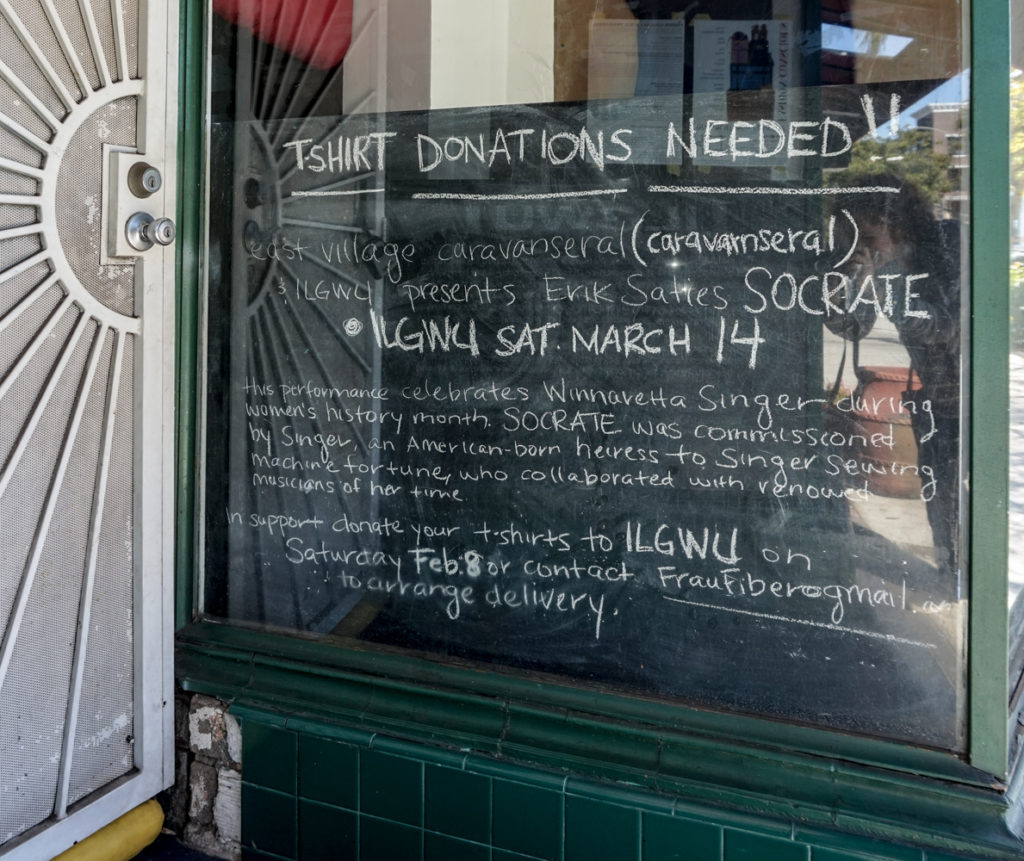 TSHIRT DONATIONS NEEDED !!
east village caravanseral (caravarnseral)
& ILGWU presents Erik Saties SOCRATE
@ ILGWU SAT. MARCH 14
this performance celebrates Winnaretta Singer during
women's history month. SOCRATE was commisscioned
by Singer, an American-born heiress to Singer sewing
machine fortune, who collaborated with renowed
musicians of her time.
In support donate your t-shirts to ILGWU on
Saturday Feb. 8 or contact FrauFiber@gmail
to arrange delivery.